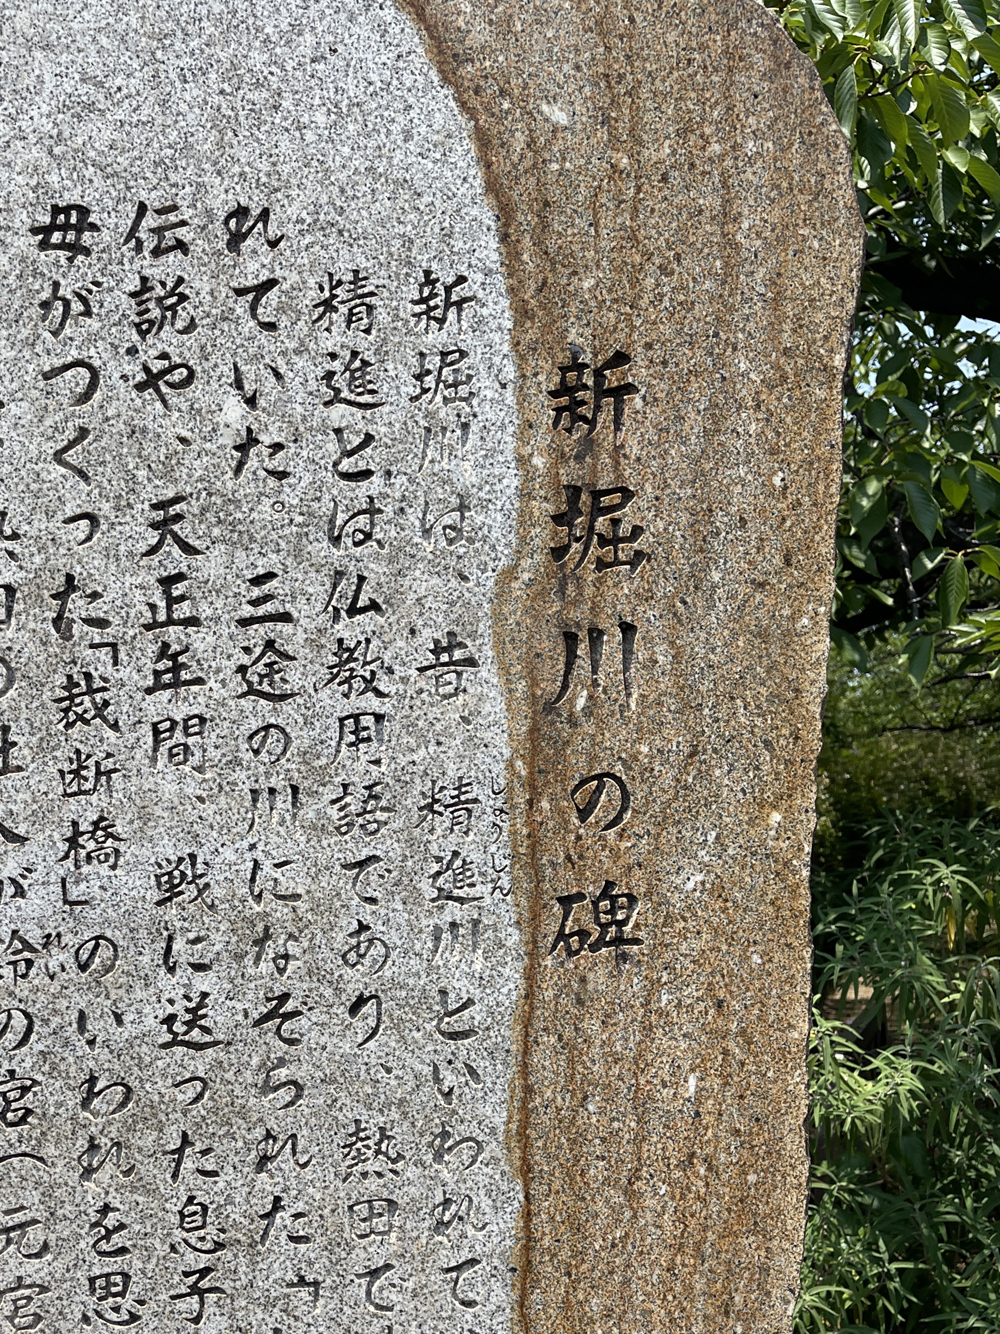 新堀川の碑
新堀川は、昔、精進川といわれて
しょうじん
精進とは仏教用語であり、熱田で
れていた。三途の川になぞらえれた
伝説や、天正年間、戦に送った息子
母がつくった「裁断橋」のいわれを思
が鈴の宮（元宮
れい